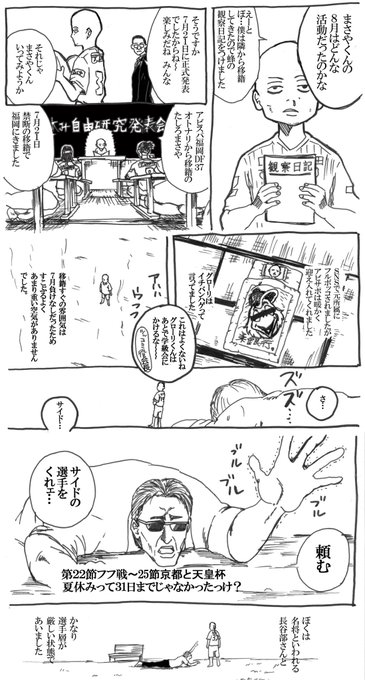 まさやくんの
8月はどんな
活動だったのかな
えーと
ぼ…僕は隣から移籍
してきたので蜂の
観察日記をつけました
観察日記
そうですか
7月21日に正式発表
でしたからね〜
楽しみだねぇみんな
それじゃ
まさやくん
いってみようか
み自由研究発表会
アビスパ福岡DF37
オトナリから移籍の
たしろまさや
7月21日
禁断の移籍で
福岡にきました
SNSで元所属に
フルボッコされましたが
アビサポは暖かく
迎え入れてくれました
グローリは
イチバンダって
言ってました
これはよくないね
グローリくんは
あとで学級会に
かけるね〜
アハハ
ウフフ
移籍すぐの雰囲気は
7月負けなしだったため
すこぶるよく
あまり重い空気がありません
でした。
ズズ…
さ…
サイド…
ブル
ブル
ブル
ブル
頼む
サイドの
選手を
くれェ…
第22節フフ戦〜25節京都と天皇杯
夏休みって31日までじゃなかったっけ?
ぼくは
名将といわれる
長谷部さんと
かなり
選手層が
厳しい状態で
あいました